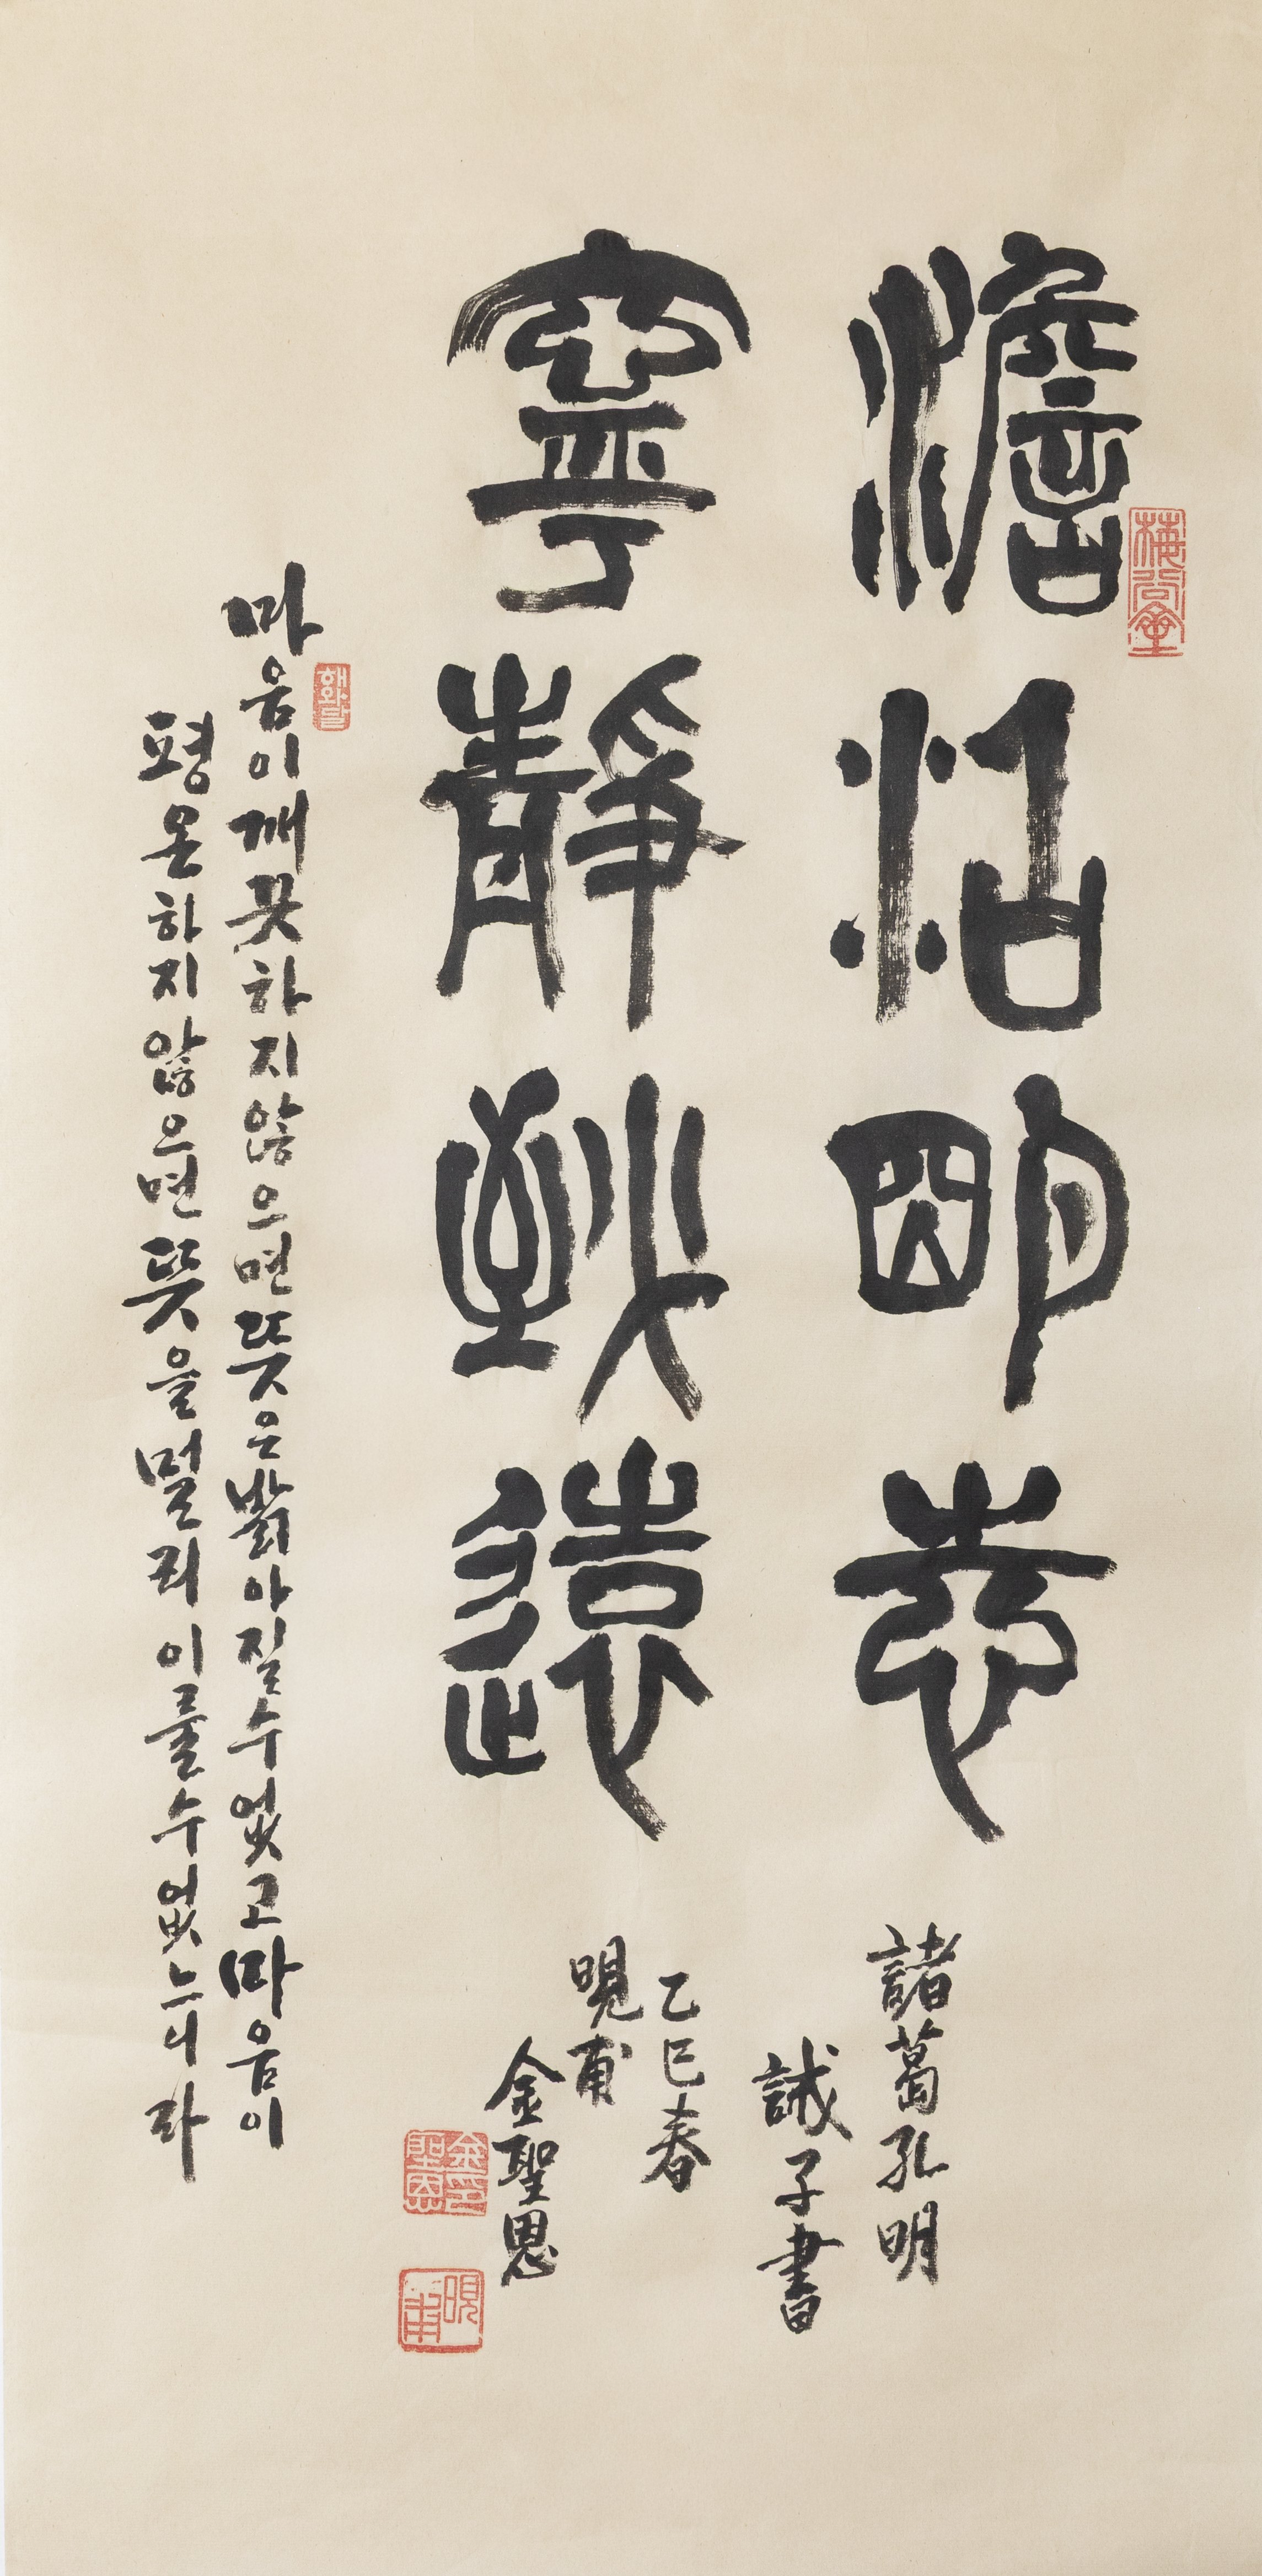 澹恬明志
寧靜致遠
諸葛孔明
誡子書
乙巳春
晛甫
金聖恩
마음이깨끗하지않으면뜻은밝아질수없고마음이
평온하지않으면뜻을멀리이룰수없느니라
해와달
金聖恩印
晛甫